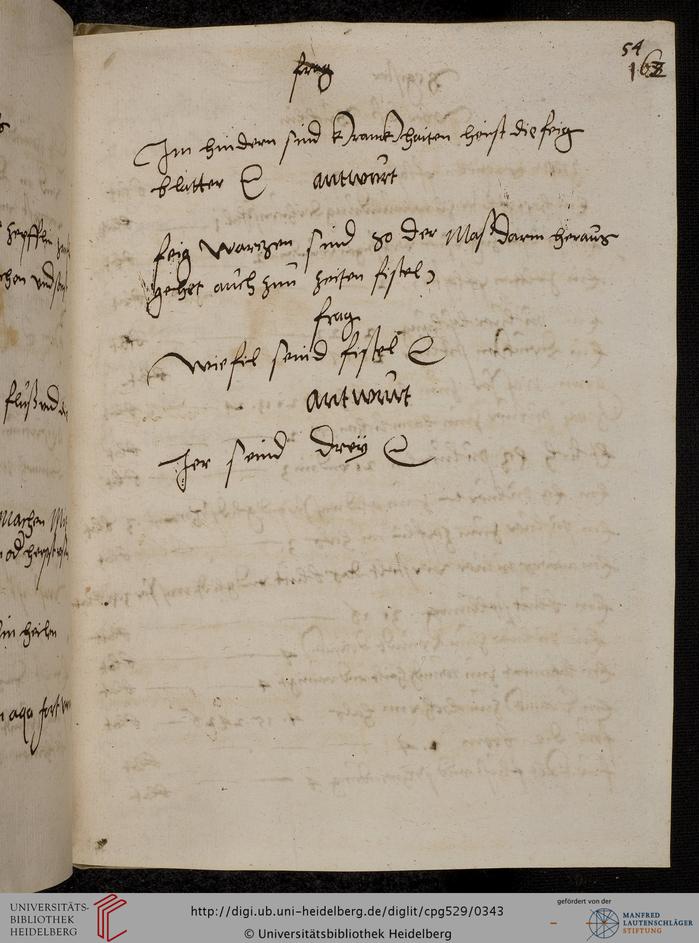 54
162
frag
Im hindern sind kranckhaiten heist die feig
blatter
antwurt
feig wartzen sind so der Masdarm heraus
gehet auch zun zeiten fistel
frag
wiefil seind fistel
antwurt
Jer seind drey
fluß und
Machen
heilen
UNIVERSITÄTS-
BIBLIOTHEK
HEIDELBERG
http://digi.ub.uni-heidelberg.de/diglit/cpg529/0343
© Universitätsbibliothek Heidelberg
gefördert von der
MANFRED
LAUTENSCHLÄGER
STIFTUNG